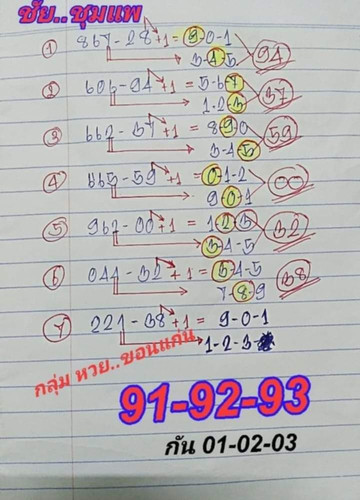 ชัย..ชุมแพ
① 867-28+1 = 9-0-1
3-4-5 94
② 606-94+1 = 5-6-7
1-2-3 37
③ 662-37+1 8-9-0
3-4-5 59
④ 665-59+1 = 0-1-2
9-0-1 00
⑤ 962-00+1 1-2-3
3-4-5 32
⑥ 044-32+1 = 3-4-5
7-8-9 38
⑦ 221-38+1 = 9-0-1
1-2-3
กลุ่ม หวย..ขอนแก่น
91-92-93
กัน 01-02-03